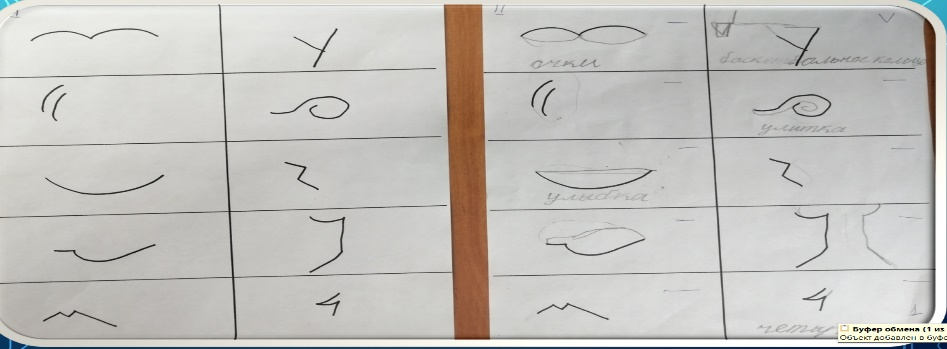 I
II
очки
баскетбольное кольцо
улитка
улыбка
Буфер обмена (1 из
Объект добавлен в буфе